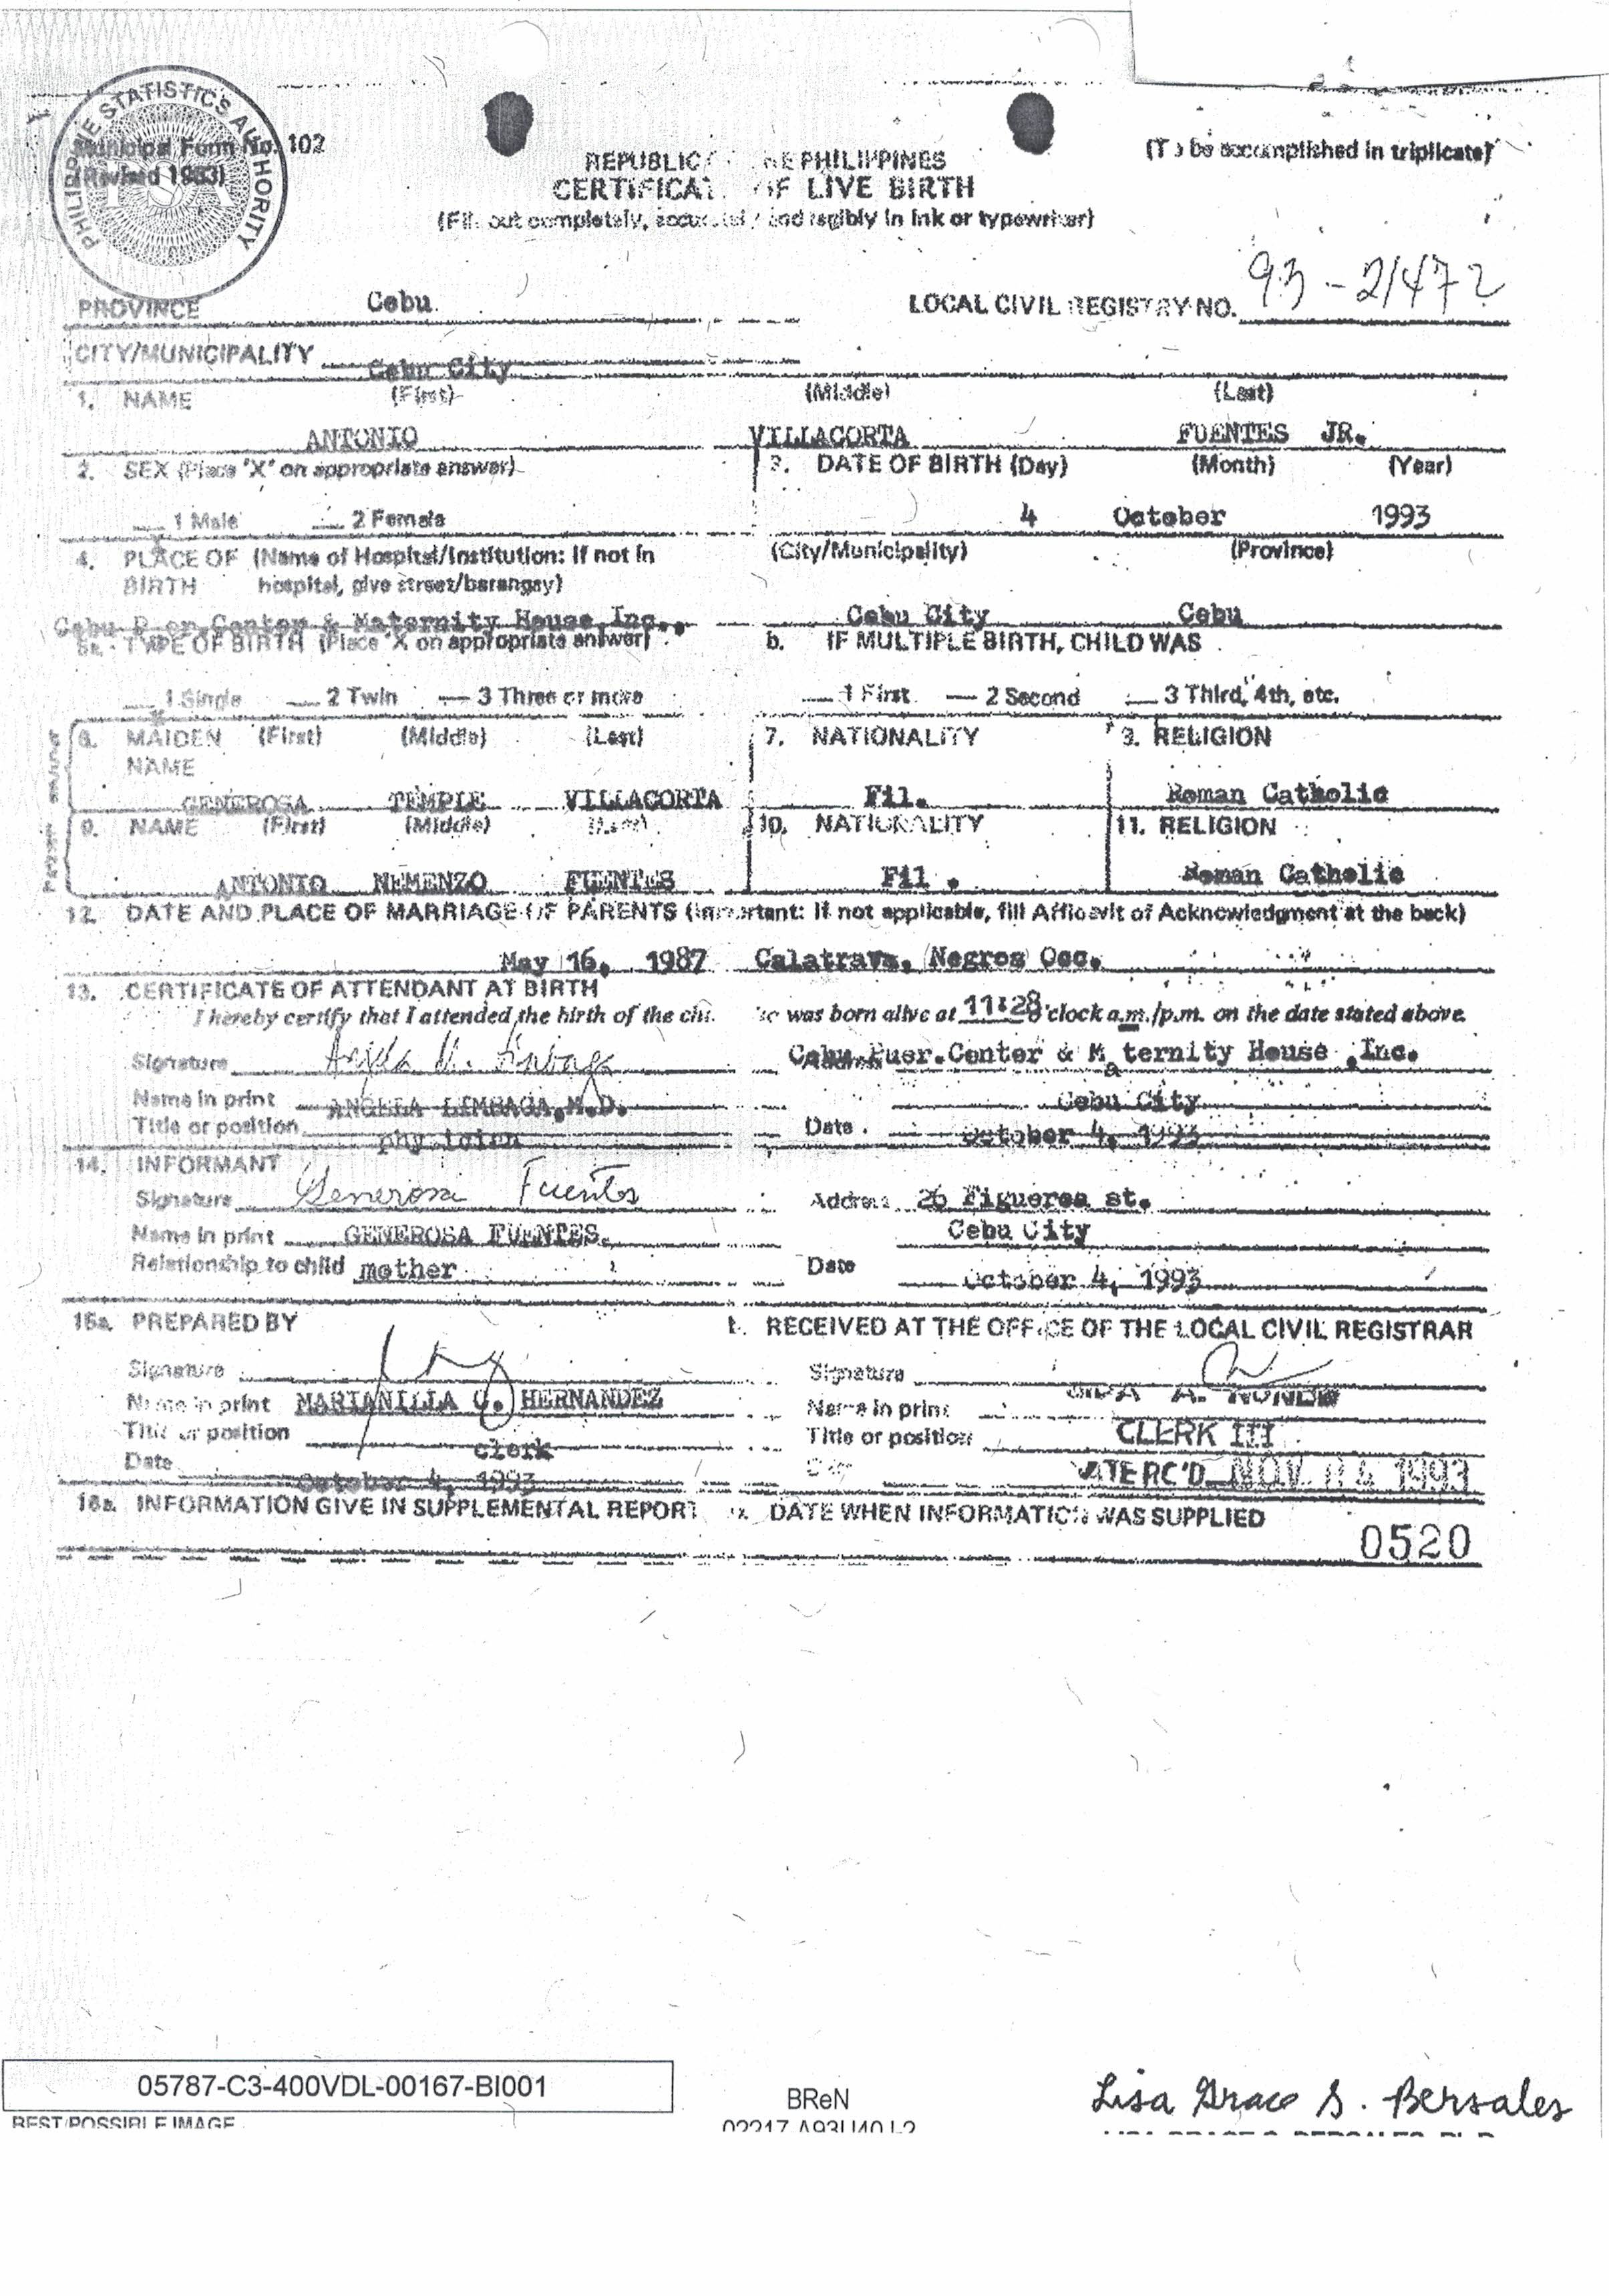 PHILIPPINE STATISTICS AUTHORITY
PSA
Municipal Form No. 102
(Revised 1983)
(To be accomplished in triplicate)
REPUBLIC THE PHILIPPINES
CERTIFICATE OF LIVE BIRTH
(Fill out completely, accurately and legibly in ink or typewriter)
PROVINCE Cebu
LOCAL CIVIL REGISTRY NO. 93-21472
CITY/MUNICIPALITY Cebu City
1. NAME (First) (Middle) (Last)
ANTONIO VILLACORTA FUENTES JR.
2. SEX (Place "X" on appropriate answer) 3. DATE OF BIRTH (Day) (Month) (Year)
1 Male 2 Female 4 October 1993
4. PLACE OF (Name of Hospital/Institution: If not in (City/Municipality) (Province)
BIRTH hospital, give street/barangay)
Cebu Center & Maternity House, Inc., Cebu City Cebu
5a. TYPE OF BIRTH (Place "X" on appropriate answer) b. IF MULTIPLE BIRTH, CHILD WAS
1 Single 2 Twin 3 Three or more 1 First 2 Second 3 Third, 4th, etc.
6. MAIDEN (First) (Middle) (Last) 7. NATIONALITY 8. RELIGION
NAME
GENEROSA TEMPLE VILLACORTA Fil. Roman Catholic
9. NAME (First) (Middle) (Last) 10. NATIONALITY 11. RELIGION
ANTONIO NEMENZO FUENTES Fil . Roman Catholic
12. DATE AND PLACE OF MARRIAGE OF PARENTS (Important: If not applicable, fill Affidavit of Acknowledgment at the back)
May 16, 1987 Calatrava, Negros Occ.
13. CERTIFICATE OF ATTENDANT AT BIRTH
I hereby certify that I attended the birth of the was born alive at 11:28 o'clock a.m./p.m. on the date stated above.
Signature Address Cebu Puer. Center & Maternity House ,Inc.
Name in print ANGELA LIMBAGA, M.D. Cebu City
Title or position physician Date October 4, 1993
14. INFORMANT
Signature Generosa Fuentes Address 26 Figueroa st.
Name in print GENEROSA FUENTES. Cebu City
Relationship to child mother Date October 4, 1993
15a. PREPARED BY b. RECEIVED AT THE OFFICE OF THE LOCAL CIVIL REGISTRAR
Signature Signature
Name in print MARIANILLA C. HERNANDEZ Name in print
Title or position clerk Title or position CLERK III
Date October 4, 1993 DATE RC'D NOV 04 1993
16a. INFORMATION GIVE IN SUPPLEMENTAL REPORT DATE WHEN INFORMATION WAS SUPPLIED
0520
05787-C3-400VDL-00167-BI001
BReN
Lisa Grace S. Bersales
BEST POSSIBLE IMAGE